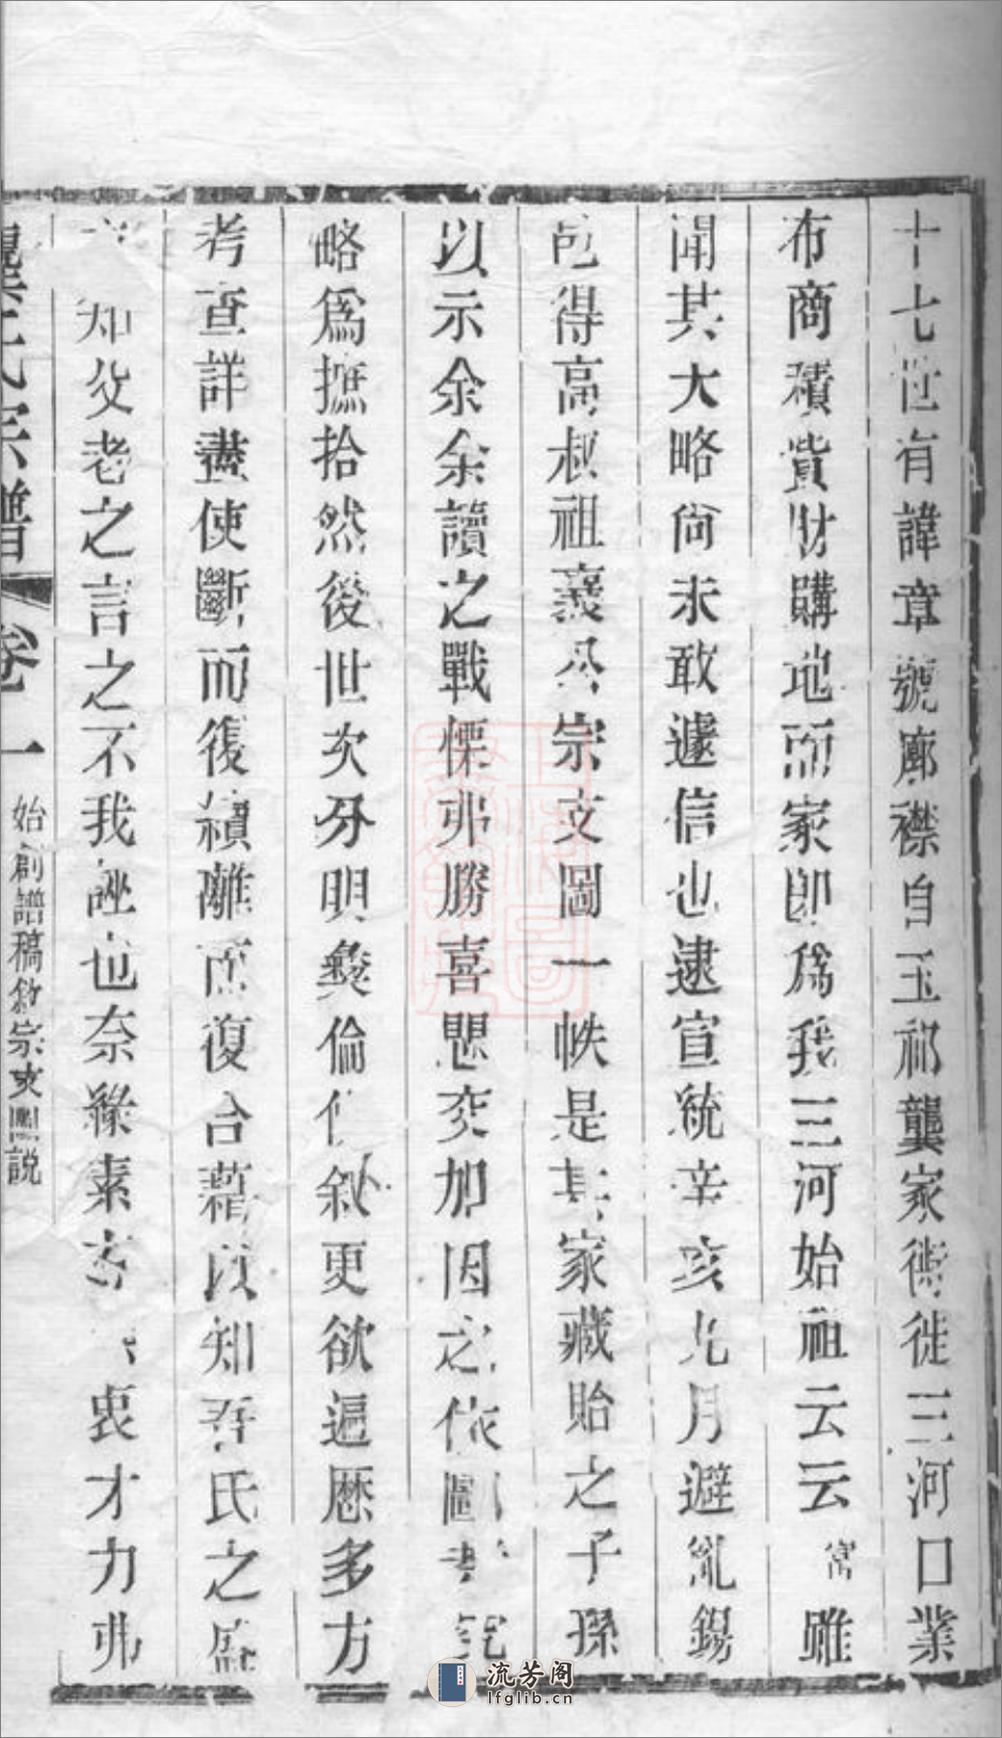 十七世有諱章號廊襟自玉祁龔家衖徙三河口業
布商積貲財購地而家卽爲我三河始祖云云 窩雖
聞其大略尙未敢遽信也逮宣統辛亥九月避亂錫
邑得高叔祖襄公宗支圖一帙是其家藏貽之子孫
以示余余讀之戰慄弗勝喜悲交加因之依圖
略爲摭拾然後世次分明彝倫 敍更欲遍歷多方
考查詳盡使斷而復續離而復合藉以知吾氏之
知父老之言之不我誣也奈緣素 衷才力弗
龔氏宗譜 卷一 始創譜稿敘宗支圖說
流芳阁
lfglib.cn